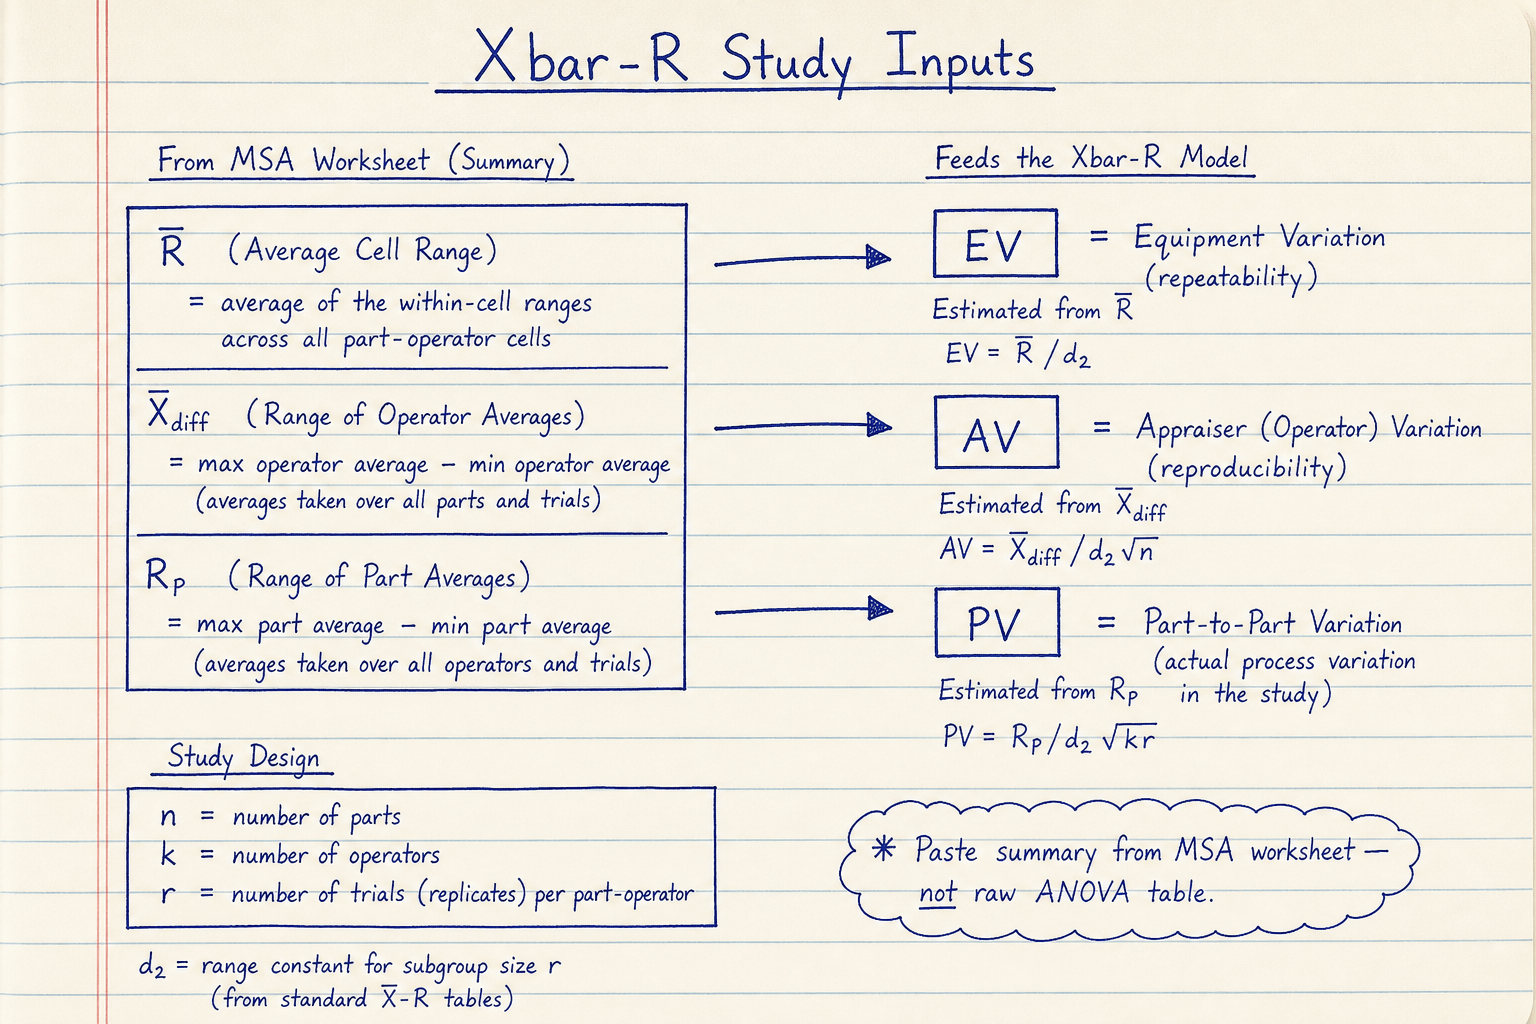 Xbar-R Study Inputs
From MSA Worksheet (Summary)
R̄ (Average Cell Range)
= average of the within-cell ranges
across all part-operator cells
X̄diff (Range of Operator Averages)
= max operator average – min operator average
(averages taken over all parts and trials)
Rp (Range of Part Averages)
= max part average – min part average
(averages taken over all operators and trials)
Study Design
n = number of parts
k = number of operators
r = number of trials (replicates) per part-operator
d₂ = range constant for subgroup size r
(from standard X̄-R tables)
Feeds the Xbar-R Model
EV = Equipment Variation
(repeatability)
Estimated from R̄
EV = R̄ / d₂
AV = Appraiser (Operator) Variation
(reproducibility)
Estimated from X̄diff
AV = X̄diff / d₂ √n
PV = Part-to-Part Variation
(actual process variation
Estimated from Rp in the study)
PV = Rp / d₂ √kr
* Paste summary from MSA worksheet —
not raw ANOVA table.